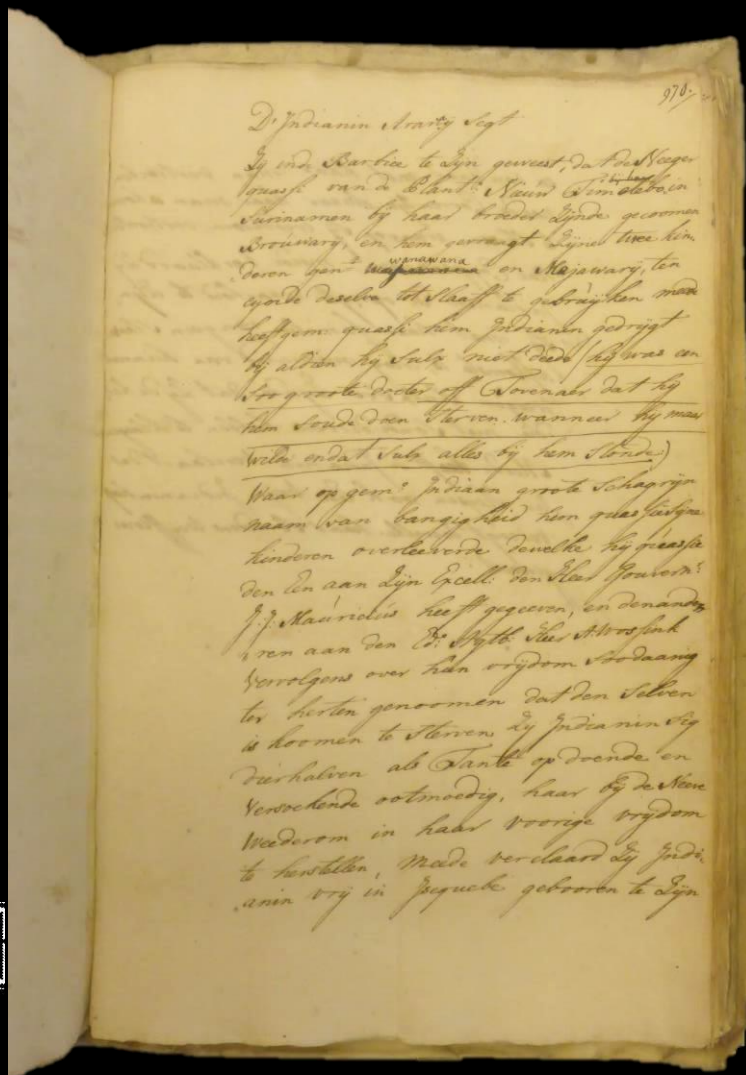 970.
D' Indianin Ararij Segt
Zij in de Barbice te Zijn geweest, dat de Neeger
quassi van de Plant: Nieuw in
Surinamen bij haar broeder Zijnde gecoomen
Brouwarij, en hem gevraagt Zijne twee kin,
wanawana
deren gen:t en Majawarij, ten
eijnde deselve tot Slaaff te gebruijken maar
heeft gem: quassi hem Indianin gedrijgt
bij aldien hij Sulx niet deede (hij was een
Soo groote docter off Tovenaer dat hij
hem Soude doen Sterven. wanneer hij maar
Wilde en dat Sulx alles bij hem Stonde)
Waar op gem:e Indiaan groote Schagrijn
naam van bangigheid hem quassie Sijne
kinderen overleeverde dewelke hij quassie
den Een aan Zijn Excell: den Heer Gouvern:r
J: J: Mauricius heeft gegeeven, en den ande,
,ren aan den Ed: Agtb: Heer A: Vossink
Vervolgens over hun vrijdom Soodaanig
ter herten genoomen dat den Selven
is koomen te Sterven Zij Indianin Sig
dierhalven als Tante op doende en
Versoekende ootmoedig, haar bij de Neeve
Weederom in haar voorige vrijdom
te herstellen, meede verclaard Zij Indi,
,anin vrij in Isequebe gebooren te Zijn